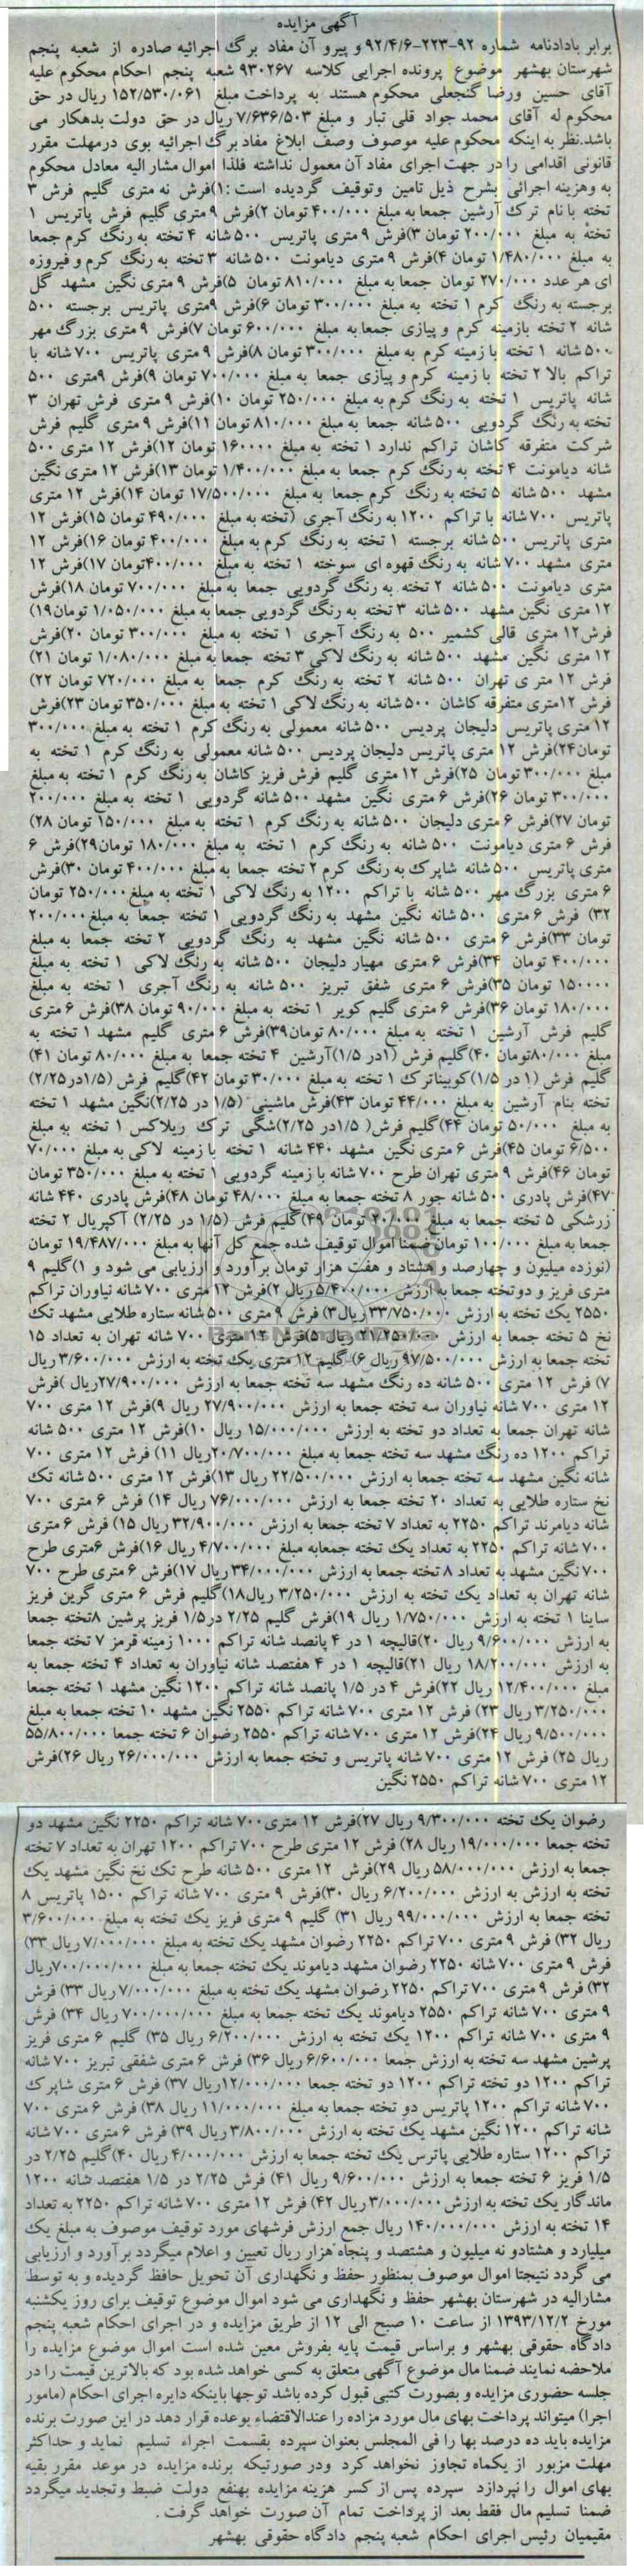 آگهی مزایده
برابر بادادنامه شماره ۹۲-۲۲۳-۹۲/۴/۶ و پیرو آن مفاد برگ اجرائیه صادره از شعبه پنجم
شهرستان بهشهر موضوع پرونده اجرایی کلاسه ۹۳۰۲۶۷ شعبه پنجم احکام محکوم علیه
آقای حسین ورضا گنجعلی محکوم هستند به پرداخت مبلغ ۱۵۲/۵۳۰/۰۶۱ ریال در حق
محکوم له آقای محمد جواد قلی تبار و مبلغ ۷/۶۳۶/۵۰۳ ریال در حق دولت بدهکار می
باشد.نظر به اینکه محکوم علیه موصوف وصف ابلاغ مفاد برگ اجرائیه بوی درمهلت مقرر
قانونی اقدامی را در جهت اجرای مفاد آن معمول نداشته فلذا اموال مشار الیه معادل محکوم
به وهزینه اجرائی بشرح ذیل تامین وتوقیف گردیده است :۱)فرش نه متری گلیم فرش ۳
تخته با نام ترک آرشین جمعا به مبلغ ۴۰۰/۰۰۰ تومان ۲)فرش ۹ متری گلیم فرش پاتریس ۱
تخته به مبلغ ۲۰۰/۰۰۰ تومان ۳)فرش ۹ متری پاتریس ۵۰۰ شانه ۴ تخته به رنگ کرم جمعا
به مبلغ ۱/۴۸۰/۰۰۰ تومان ۴)فرش ۹ متری دیامونت ۵۰۰ شانه ۳ تخته به رنگ کرم و فیروزه
ای هر عدد ۲۷۰/۰۰۰ تومان جمعا به مبلغ ۸۱۰/۰۰۰ تومان ۵)فرش ۹ متری نگین مشهد گل
برجسته به رنگ کرم ۱ تخته به مبلغ ۳۰۰/۰۰۰ تومان ۶)فرش ۹متری پاتریس برجسته ۵۰۰
شانه ۲ تخته بازمینه کرم و پیازی جمعا به مبلغ ۶۰۰/۰۰۰ تومان ۷)فرش ۹ متری بزرگ مهر
۵۰۰ شانه ۱ تخته با زمینه کرم به مبلغ ۳۰۰/۰۰۰ تومان ۸)فرش ۹ متری پاتریس ۷۰۰ شانه با
تراکم بالا ۲ تخته با زمینه کرم و پیازی جمعا به مبلغ ۷۰۰/۰۰۰ تومان ۹)فرش ۹متری ۵۰۰
شانه پاتریس ۱ تخته به رنگ کرم به مبلغ ۲۵۰/۰۰۰ تومان ۱۰)فرش ۹ متری فرش تهران ۳
تخته به رنگ گردویی ۵۰۰ شانه جمعا به مبلغ ۸۱۰/۰۰۰ تومان ۱۱)فرش ۹ متری گلیم فرش
شرکت متفرقه کاشان تراکم ندارد ۱ تخته به مبلغ ۱۶۰۰۰۰ تومان ۱۲)فرش ۱۲ متری ۵۰۰
شانه دیامونت ۴ تخته به رنگ کرم جمعا به مبلغ ۱/۴۰۰/۰۰۰ تومان ۱۳)فرش ۱۲ متری نگین
مشهد ۵۰۰ شانه ۵ تخته به رنگ کرم جمعا به مبلغ ۱۷/۵۰۰/۰۰۰ تومان ۱۴)فرش ۱۲ متری
پاتریس ۷۰۰ شانه با تراکم ۱۲۰۰ به رنگ آجری (تخته به مبلغ ۴۹۰/۰۰۰ تومان ۱۵)فرش ۱۲
متری پاتریس ۵۰۰ شانه برجسته ۱ تخته به رنگ کرم به مبلغ ۴۰۰/۰۰۰ تومان ۱۶)فرش ۱۲
متری مشهد ۷۰۰ شانه به رنگ قهوه ای سوخته ۱ تخته به مبلغ ۴۰۰/۰۰۰تومان ۱۷)فرش ۱۲
متری دیامونت ۵۰۰ شانه ۲ تخته به رنگ گردویی جمعا به مبلغ ۷۰۰/۰۰۰ تومان ۱۸)فرش
۱۲ متری نگین مشهد ۵۰۰ شانه ۳ تخته به رنگ گردویی جمعا به مبلغ ۱/۰۵۰/۰۰۰ تومان۱۹)
فرش۱۲ متری قالی کشمیر ۵۰۰ به رنگ آجری ۱ تخته به مبلغ ۳۰۰/۰۰۰ تومان ۲۰)فرش
۱۲ متری نگین مشهد ۵۰۰ شانه به رنگ لاکی ۳ تخته جمعا به مبلغ ۱/۰۸۰/۰۰۰ تومان ۲۱)
فرش ۱۲ متر ی تهران ۵۰۰ شانه ۲ تخته به رنگ کرم جمعا به مبلغ ۷۲۰/۰۰۰ تومان ۲۲)
فرش ۱۲متری متفرقه کاشان ۵۰۰ شانه به رنگ لاکی ۱ تخته به مبلغ ۳۵۰/۰۰۰ تومان ۲۳)فرش
۱۲ متری پاتریس دلیجان پردیس ۵۰۰ شانه معمولی به رنگ کرم ۱ تخته به مبلغ ۳۰۰/۰۰۰
تومان۲۴)فرش ۱۲ متری پاتریس دلیجان پردیس ۵۰۰ شانه معمولی به رنگ کرم ۱ تخته به
مبلغ ۳۰۰/۰۰۰ تومان ۲۵)فرش ۱۲ متری گلیم فرش فریز کاشان به رنگ کرم ۱ تخته به مبلغ
۳۰۰/۰۰۰ تومان ۲۶)فرش ۶ متری نگین مشهد ۵۰۰ شانه گردویی ۱ تخته به مبلغ ۲۰۰/۰۰۰
تومان ۲۷)فرش ۶ متری دلیجان ۵۰۰ شانه به رنگ کرم ۱ تخته به مبلغ ۱۵۰/۰۰۰ تومان ۲۸)
فرش ۶ متری دیامونت ۵۰۰ شانه به رنگ کرم ۱ تخته به مبلغ ۱۸۰/۰۰۰ تومان۲۹)فرش ۶
متری پاتریس ۵۰۰ شانه شاپرک به رنگ کرم ۲ تخته جمعا به مبلغ ۴۰۰/۰۰۰ تومان ۳۰)فرش
۶ متری بزرگ مهر ۵۰۰ شانه با تراکم ۱۲۰۰ به رنگ لاکی ۱ تخته به مبلغ۲۵۰/۰۰۰ تومان
۳۲) فرش ۶ متری ۵۰۰ شانه نگین مشهد به رنگ گردویی ۱ تخته جمعا به مبلغ۲۰۰/۰۰۰
تومان ۳۳)فرش ۶ متری ۵۰۰ شانه نگین مشهد به رنگ گردویی ۲ تخته جمعا به مبلغ
۴۰۰/۰۰۰ تومان ۳۴)فرش ۶ متری مهیار دلیجان ۵۰۰ شانه به رنگ لاکی ۱ تخته به مبلغ
۱۵۰۰۰۰ تومان ۳۵)فرش ۶ متری شفق تبریز ۵۰۰ شانه به رنگ آجری ۱ تخته به مبلغ
۱۸۰/۰۰۰ تومان ۳۶)فرش ۶ متری گلیم کویر ۱ تخته به مبلغ ۹۰/۰۰۰ تومان ۳۸)فرش ۶ متری
گلیم فرش آرشین ۱ تخته به مبلغ ۸۰/۰۰۰ تومان۳۹)فرش ۶ متری گلیم مشهد ۱ تخته به
مبلغ ۸۰/۰۰۰تومان ۴۰)گلیم فرش (۱در ۱/۵)آرشین ۴ تخته جمعا به مبلغ ۸۰/۰۰۰ تومان ۴۱)
گلیم فرش (۱ در ۱/۵)کوبیناترک ۱ تخته به مبلغ ۳۰/۰۰۰ تومان ۴۲)گلیم فرش (۱/۵در۲/۲۵)
تخته بنام آرشین به مبلغ ۴۴/۰۰۰ تومان ۴۳)فرش ماشینی (۱/۵ در ۲/۲۵)نگین مشهد ۱ تخته
به مبلغ ۵۰/۰۰۰ تومان ۴۴)گلیم فرش( ۱/۵در ۲/۲۵)شگی ترک ریلاکس ۱ تخته به مبلغ
۶/۵۰۰ تومان ۴۵)فرش ۶ متری نگین مشهد ۴۴۰ شانه ۱ تخته با زمینه لاکی به مبلغ ۷۰/۰۰۰
تومان ۴۶)فرش ۹ متری تهران طرح ۷۰۰ شانه با زمینه گردویی ۱ تخته به مبلغ ۳۵۰/۰۰۰ تومان
۴۷)فرش پادری ۵۰۰ شانه جور ۸ تخته جمعا به مبلغ ۴۸/۰۰۰ تومان ۴۸)فرش پادری ۴۴۰ شانه
زرشکی ۵ تخته جمعا به مبلغ ۲۰/۰۰۰ تومان ۴۹)گلیم فرش (۱/۵ در ۲/۲۵) آکپریال ۲ تخته
جمعا به مبلغ ۱۰۰/۰۰۰ تومان ضمنا اموال توقیف شده جمع کل آنها به مبلغ ۱۹/۴۸۷/۰۰۰ تومان
(نوزده میلیون و چهارصد و هشتاد و هفت هزار تومان برآورد و ارزیابی می شود و ۱)گلیم ۹
متری فریز و دوتخته جمعا به ارزش ۵/۴۰۰/۰۰۰ ریال ۲)فرش ۱۲ متری ۷۰۰ شانه نیاوران تراکم
۲۵۵۰ یک تخته به ارزش ۳۳/۷۵۰/۰۰۰ریال۳) فرش ۹ متری ۵۰۰ شانه ستاره طلایی مشهد تک
نخ ۵ تخته جمعا به ارزش ۲۱/۲۵۰/۰۰۰ریال ۵)فرش ۱۲ متری ۷۰۰ شانه تهران به تعداد ۱۵
تخته جمعا به ارزش ۹۷/۵۰۰/۰۰۰ ریال ۶) گلیم ۱۲ متری یک تخته به ارزش ۳/۶۰۰/۰۰۰ ریال
۷) فرش ۱۲ متری ۵۰۰ شانه ده رنگ مشهد سه تخته جمعا به ارزش ۲۷/۹۰۰/۰۰۰ریال )فرش
۱۲ متری ۷۰۰ شانه نیاوران سه تخته جمعا به ارزش ۲۷/۹۰۰/۰۰۰ ریال ۹)فرش ۱۲ متری ۷۰۰
شانه تهران جمعا به تعداد دو تخته به ارزش ۱۵/۰۰۰/۰۰۰ ریال ۱۰)فرش ۱۲ متری ۵۰۰ شانه
تراکم ۱۲۰۰ ده رنگ مشهد سه تخته جمعا به مبلغ ۲۰/۷۰۰/۰۰۰ریال ۱۱) فرش ۱۲ متری ۷۰۰
شانه نگین مشهد سه تخته جمعا به ارزش ۲۲/۵۰۰/۰۰۰ ریال ۱۳)فرش ۱۲ متری ۵۰۰ شانه تک
نخ ستاره طلایی به تعداد ۲۰ تخته جمعا به ارزش ۷۶/۰۰۰/۰۰۰ ریال ۱۴) فرش ۶ متری ۷۰۰
شانه دیامرند تراکم ۲۲۵۰ به تعداد ۷ تخته جمعا به ارزش ۳۲/۹۰۰/۰۰۰ ریال ۱۵) فرش ۶ متری
۷۰۰ شانه تراکم ۲۲۵۰ به تعداد یک تخته جمعابه مبلغ ۴/۷۰۰/۰۰۰ ریال ۱۶)فرش ۶متری طرح
۷۰۰ نگین مشهد به تعداد ۸ تخته جمعا به ارزش ۳۴/۰۰۰/۰۰۰ ریال ۱۷)فرش ۶ متری طرح ۷۰۰
شانه تهران به تعداد یک تخته به ارزش ۳/۲۵۰/۰۰۰ ریال۱۸)گلیم فرش ۶ متری گرین فریز
ساینا ۱ تخته به ارزش ۱/۷۵۰/۰۰۰ ریال ۱۹)فرش گلیم ۲/۲۵ در۱/۵ فریز پرشین ۸تخته جمعا
به ارزش ۹/۶۰۰/۰۰۰ ریال ۲۰)قالیچه ۱ در ۴ پانصد شانه تراکم ۱۰۰۰ زمینه قرمز ۷ تخته جمعا
به ارزش ۱۸/۲۰۰/۰۰۰ ریال ۲۱)قالیچه ۱ در ۴ هفتصد شانه نیاوران به تعداد ۴ تخته جمعا به
مبلغ ۱۲/۴۰۰/۰۰۰ ریال ۲۲)فرش ۴ در ۱/۵ پانصد شانه تراکم ۱۲۰۰ نگین مشهد ۱ تخته جمعا
۳/۲۵۰/۰۰۰ ریال ۲۳) فرش ۱۲ متری ۷۰۰ شانه تراکم ۲۵۵۰ نگین مشهد ۱۰ تخته جمعا به مبلغ
۹/۵۰۰/۰۰۰ ریال ۲۴)فرش ۱۲ متری ۷۰۰ شانه تراکم ۲۵۵۰ رضوان ۶ تخته جمعا ۵۵/۸۰۰/۰۰۰
ریال ۲۵) فرش ۱۲ متری ۷۰۰ شانه پاتریس و تخته جمعا به ارزش ۲۶/۰۰۰/۰۰۰ ریال ۲۶)فرش
۱۲ متری ۷۰۰ شانه تراکم ۲۵۵۰ نگین
رضوان یک تخته ۹/۳۰۰/۰۰۰ ریال ۲۷)فرش ۱۲ متری ۷۰۰ شانه تراکم ۲۲۵۰ نگین مشهد دو
تخته جمعا ۱۹/۰۰۰/۰۰۰ ریال ۲۸) فرش ۱۲ متری طرح ۷۰۰ تراکم ۱۲۰۰ تهران به تعداد ۷ تخته
جمعا به ارزش ۵۸/۰۰۰/۰۰۰ ریال ۲۹)فرش ۱۲ متری ۵۰۰ شانه طرح تک نخ نگین مشهد یک
تخته به ارزش به ارزش ۶/۲۰۰/۰۰۰ ریال ۳۰)فرش ۹ متری ۷۰۰ شانه تراکم ۱۵۰۰ پاتریس ۸
تخته جمعا به ارزش ۹۹/۰۰۰/۰۰۰ ریال ۳۱) گلیم ۹ متری فریز یک تخته به مبلغ ۳/۶۰۰/۰۰۰
ریال ۳۲) فرش ۹ متری ۷۰۰ تراکم ۲۲۵۰ رضوان مشهد یک تخته به مبلغ ۷/۰۰۰/۰۰۰ریال ۳۳)
فرش ۹ متری ۷۰۰ شانه ۲۲۵۰ رضوان مشهد دیاموند یک تخته جمعا به مبلغ ۷۰۰/۰۰۰/۰۰۰ریال
۳۲) فرش ۹ متری ۷۰۰ تراکم ۲۲۵۰ رضوان مشهد یک تخته به مبلغ ۷/۰۰۰/۰۰۰ ریال ۳۳) فرش
۹ متری ۷۰۰ شانه تراکم ۲۵۵۰ دیاموند یک تخته جمعا به مبلغ ۷۰۰/۰۰۰/۰۰۰ ریال ۳۴) فرش
۹ متری ۷۰۰ شانه تراکم ۱۲۰۰ یک تخته به ارزش ۶/۲۰۰/۰۰۰ ریال ۳۵) گلیم ۶ متری فریز
پرشین مشهد سه تخته به ارزش جمعا ۶/۶۰۰/۰۰۰ ریال ۳۶) فرش ۶ متری شفقی تبریز ۷۰۰ شانه
تراکم ۱۲۰۰ دو تخته تراکم ۱۲۰۰ دو تخته جمعا ۱۲/۰۰۰/۰۰۰ریال ۳۷) فرش ۶ متری شاپرک
۷۰۰ شانه تراکم ۱۲۰۰ پاتریس دو تخته جمعا به مبلغ ۱۱/۰۰۰/۰۰۰ ریال ۳۸) فرش ۶ متری ۷۰۰
شانه تراکم ۱۲۰۰ نگین مشهد یک تخته به ارزش ۳/۸۰۰/۰۰۰ ریال ۳۹) فرش ۶ متری ۷۰۰ شانه
تراکم ۱۲۰۰ ستاره طلایی پاترس یک تخته جمعا به ارزش ۴/۰۰۰/۰۰۰ ریال ۴۰)گلیم ۲/۲۵ در
۱/۵ فریز ۶ تخته جمعا به ارزش ۹/۶۰۰/۰۰۰ ریال ۴۱) فرش ۲/۲۵ در ۱/۵ هفتصد شانه ۱۲۰۰
ماندگار یک تخته به ارزش ۳/۰۰۰/۰۰۰ ریال ۴۲) فرش ۱۲ متری ۷۰۰ شانه تراکم ۲۲۵۰ به تعداد
۱۴ تخته به ارزش ۱۴۰/۰۰۰/۰۰۰ ریال جمع ارزش فرشهای مورد توقیف موصوف به مبلغ یک
میلیارد و هشتادو نه میلیون و هشتصد و پنجاه هزار ریال تعیین و اعلام میگردد برآورد و ارزیابی
می گردد نتیجتا اموال موصوف بمنظور حفظ و نگهداری آن تحویل حافظ گردیده و به توسط
مشارالیه در شهرستان بهشهر حفظ و نگهداری می شود اموال موضوع توقیف برای روز یکشنبه
مورخ ۱۳۹۳/۱۲/۲ از ساعت ۱۰ صبح الی ۱۲ از طریق مزایده و در اجرای احکام شعبه پنجم
دادگاه حقوقی بهشهر و براساس قیمت پایه بفروش معین شده است اموال موضوع مزایده را
ملاحضه نمایند ضمنا مال موضوع آگهی متعلق به کسی خواهد شده بود که بالاترین قیمت را در
جلسه حضوری مزایده و بصورت کتبی قبول کرده باشد توجها باینکه دایره اجرای احکام (مامور
اجرا) میتواند پرداخت بهای مال مورد مزاده را عندالاقتضاء بوعده قرار دهد در این صورت برنده
مزایده باید ده درصد بها را فی المجلس بعنوان سپرده بقسمت اجراء تسلیم نماید و حداکثر
مهلت مزبور از یکماه تجاوز نخواهد کرد ودر صورتیکه برنده مزایده در موعد مقرر بقیه
بهای اموال را نپردازد سپرده پس از کسر هزینه مزایده بهنفع دولت ضبط وتجدید میگردد
ضمنا تسلیم مال فقط بعد از پرداخت تمام آن صورت خواهد گرفت .
مقیمیان رئیس اجرای احکام شعبه پنجم دادگاه حقوقی بهشهر